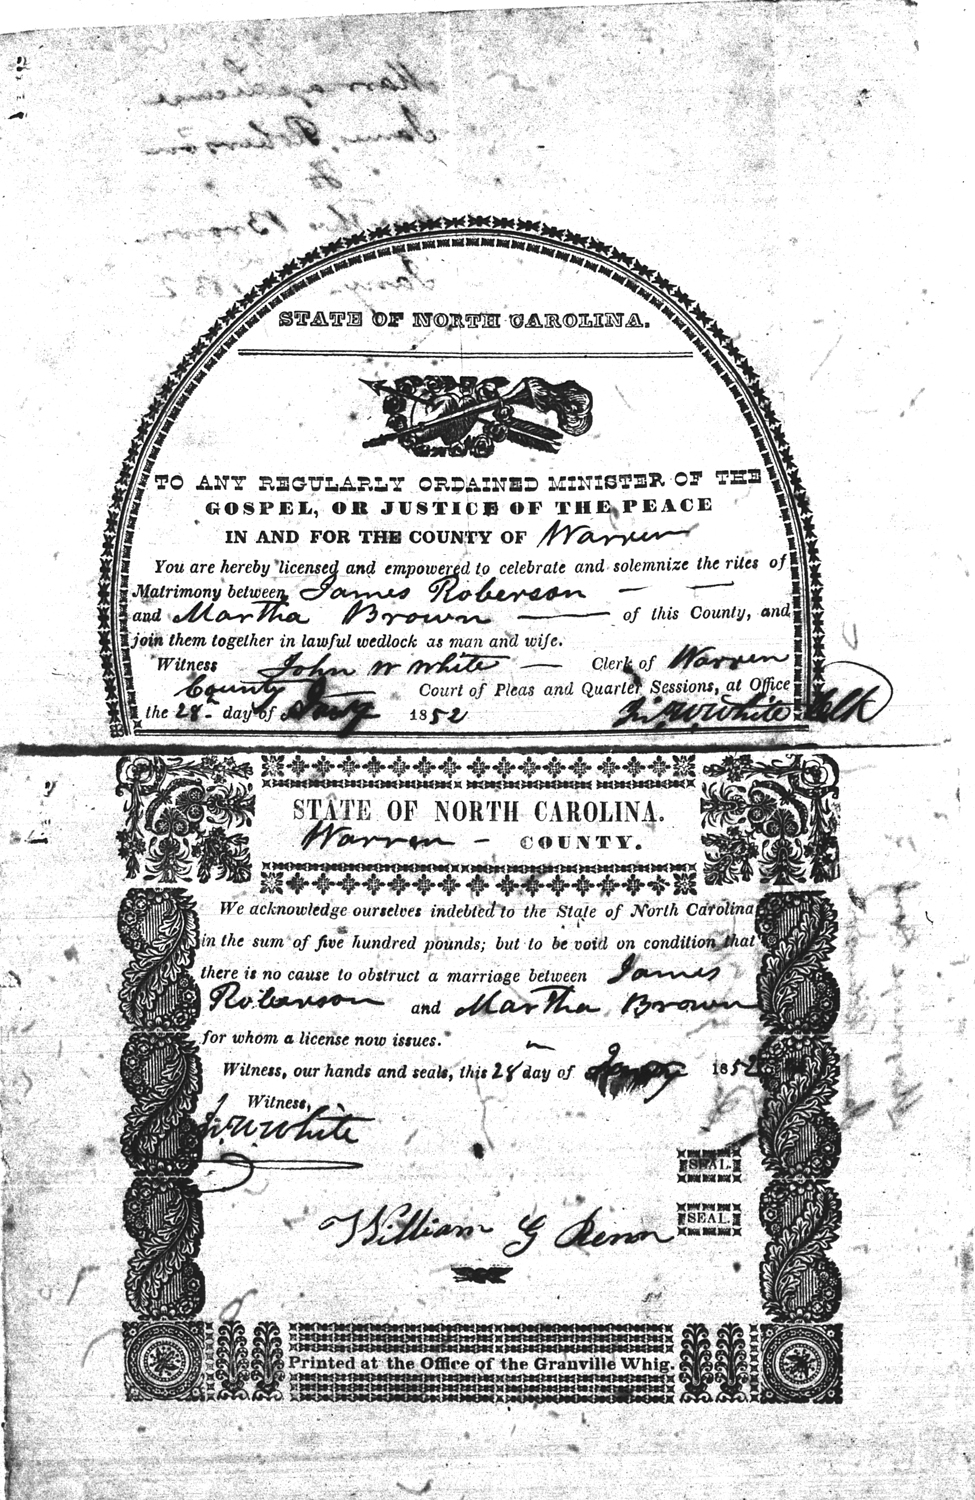 Marriage License
James Roberson
To
Martha Brown
Jany 1852
STATE OF NORTH CAROLINA.
TO ANY REGULARLY ORDAINED MINISTER OF THE
GOSPEL, OR JUSTICE OF THE PEACE
IN AND FOR THE COUNTY OF Warren
You are hereby licensed and empowered to celebrate and solemnize the rites of
Matrimony between James Roberson
and Martha Brown of this County, and
join them together in lawful wedlock as man and wife.
Witness John W White Clerk of Warren
County Court of Pleas and Quarter Sessions, at Office
the 28th day of Jany 1852 Jn. W. White Clk
STATE OF NORTH CAROLINA.
Warren - COUNTY.
We acknowledge ourselves indebted to the State of North Carolina
in the sum of five hundred pounds; but to be void on condition that
there is no cause to obstruct a marriage between James
Roberson and Martha Brown
for whom a license now issues.
Witness, our hands and seals, this 28 day of Jany 1852
Witness,
W. White
SEAL.
William G SEAL.
Printed at the Office of the Granville Whig.